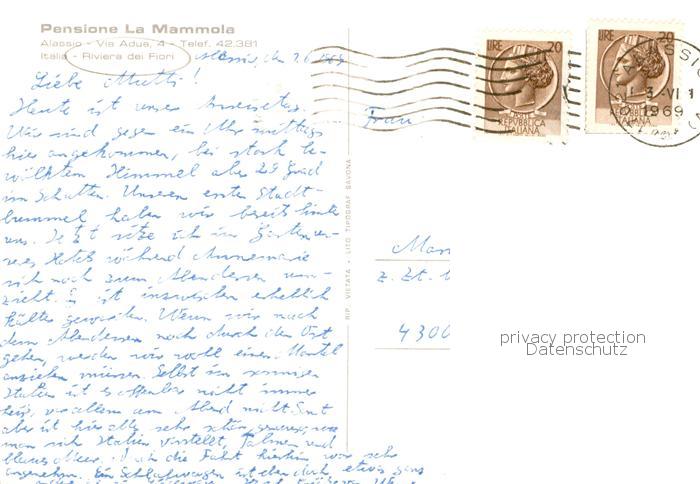 Pensione La Mammola
Alassio - Via Adua, 4 - Telef. 42.381
Italia - Riviera dei Fiori
Alassio, den 2.6.1969
Liebe Mutti!
Heute ist unser Anreisetag.
Wir sind gegen ein Uhr mittags
hier angekommen, bei stark be-
wölktem Himmel aber 29 Grad
im Schatten. Unseren ersten Stadt-
bummel haben wir bereits hinter
uns. Jetzt sitze ich im Garten un-
seres Hotels während Annemarie
sich noch zum Abendessen um-
zieht. Es ist inzwischen erheblich
kälter geworden. Wenn wir nach
dem Abendessen noch durch den Ort
gehen, werden wir wohl einen Mantel
anziehen müssen. Selbst im sonnigen
Italien ist es offenbar nicht immer
heiß, vor allem am Abend nicht. Sonst
aber ist hier alles sehr schön, genauso, wie
man sich Italien vorstellt, Palmen und
blaues Meer. Auch die Fahrt hierhin war sehr
angenehm. Ein Schlafwagen ist eben doch etwas ganz
Frau
z. Zt.
4300
RIP. VIETATA - LITO TIPOGRAF. SAVONA
LIRE 20
REPUBBLICA
ITALIANA
LIRE 20
REPUBBLICA
ITALIANA
3-VI
1969
privacy protection
Datenschutz